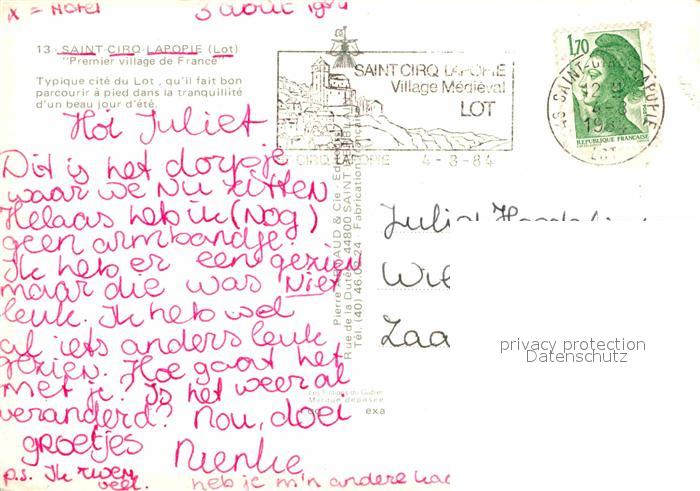 x = Hotel 3 août 1984
13 - SAINT-CIRQ-LAPOPIE (Lot)
"Premier village de France"
Typique cité du Lot, qu'il fait bon
parcourir à pied dans la tranquillité
d'un beau jour d'été.
Hoi Juliet
Dit is het dorpje
waar we nu zitten
Helaas heb ik (nog)
geen armbandje.
Ik heb er een gezien
maar die was niet
leuk. Ik heb wel
al iets anders leuk
gezien. Hoe gaat het
met je? Is het weer al
veranderd? Nou, doei
groetjes
Nienke
p.s. Ik zwem
veel.
heb je m'n andere
SAINT CIRQ LAPOPIE
Village Médiéval
LOT
CIRQ LAPOPIE 4-8-84
1,70
REPUBLIQUE FRANÇAISE
46 SAINT-CIRQ LAPOPIE
LOT
Pierre & Cie - Ed
Rue de la Dutée 44800 SAINT
Tél. (40) 46. 24 Fabrication
Les Editions du Gabier
Marque déposée
exa
Juliet
Wil
Zaa
privacy protection
Datenschutz